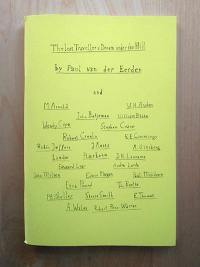 The Lost Traveller's Dream under the Hill
by Paul van der Eerden
and
M. Arnold W.H. Auden
John Betjeman William Blake
Wendy Cope Stephen Crane
Robert Creeley E.E. Cummings
Robin Jeffers J. Keats A. Ginsberg
London D.H. Lawrence
Edward Lear Andre Lorde
John Milton Ogden Nash
Ezra Pound Th. Roethke
M. Shelley Stevie Smith R. Thomas
A. Waley Robert Penn Warren